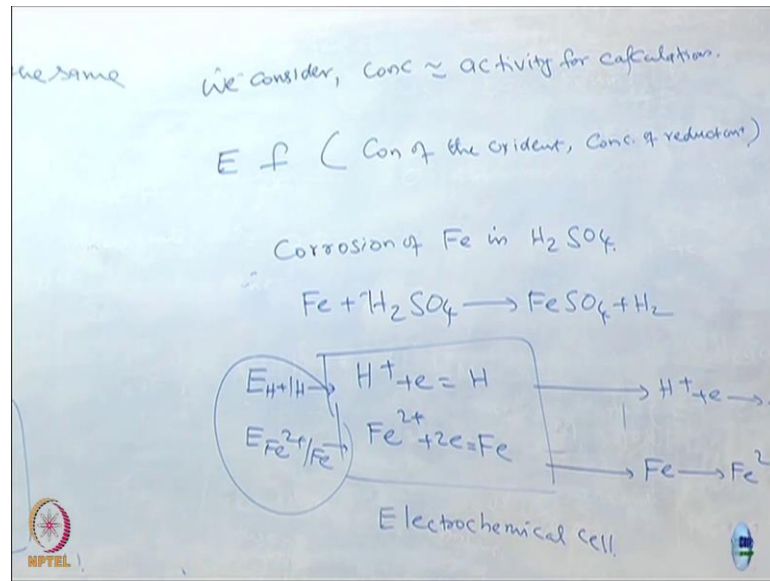 the same We consider, Conc ≃ activity for calculation.
E f ( Con of the oxident, Conc. of reductant)
Corrosion of Fe in H2SO4.
Fe + H2SO4 → FeSO4 + H2
E H+|H → H+ + e = H → H+ + e →
E Fe2+/Fe → Fe2+ + 2e = Fe → Fe → Fe2
Electrochemical cell.
NPTEL